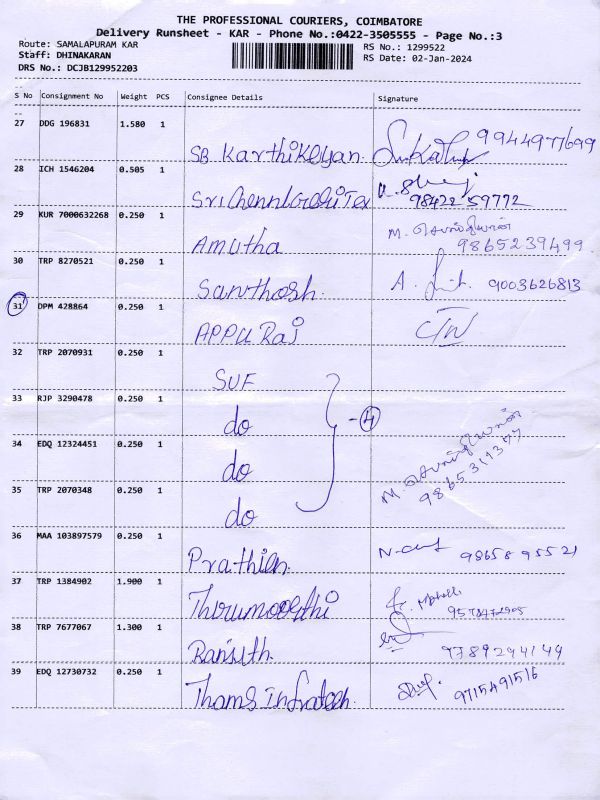 THE PROFESSIONAL COURIERS, COIMBATORE
Delivery Runsheet - KAR - Phone No.:0422-3505555 - Page No.:3
Route: SAMALAPURAM KAR
Staff: DHINAKARAN
DRS No.: DCJB129952203
RS No.: 1299522
RS Date: 02-Jan-2024
S No Consignment No Weight PCS Consignee Details Signature
27 DDG 196831 1.580 1
SB Karthikeyan 9944977699
28 ICH 1546204 0.505 1
98422 59772
29 KUR 7000632268 0.250 1
Amutha M. 9865239499
30 TRP 8270521 0.250 1
Santhosh A. 9003626813
31 DPM 428864 0.250 1
APPU Raj
32 TRP 2070931 0.250 1
SUF
33 RJP 3290478 0.250 1
do - 4
34 EDQ 12324451 0.250 1
do M.
35 TRP 2070348 0.250 1
do
36 MAA 103897579 0.250 1
9865895521
37 TRP 1384902 1.900 1
Thirumoorthi
38 TRP 7677067 1.300 1
Ranjith 9789294149
39 EDQ 12730732 0.250 1
Thams Infratech 9715491516